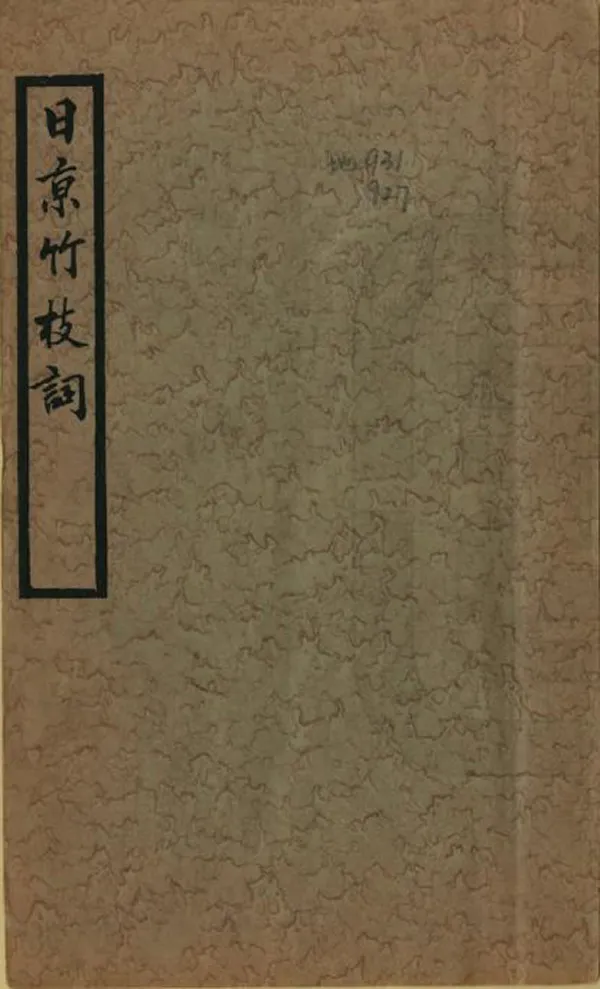 日京竹枝詞
地931
927